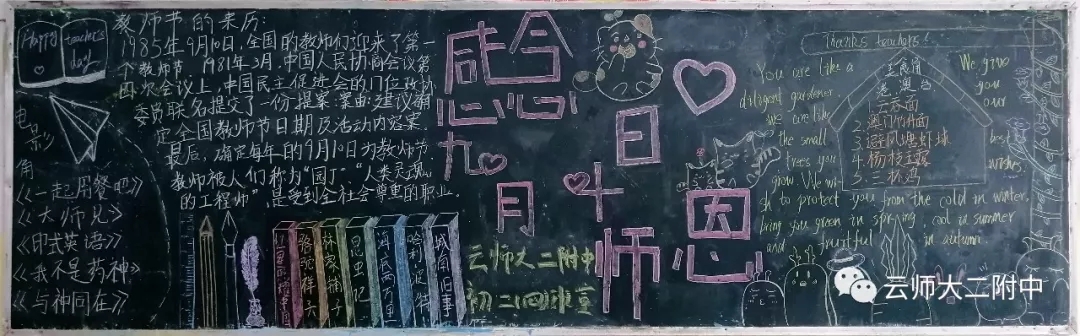 Happy
teacher's
day
教师节的来历:
1985年9月10日,全国的教师们迎来了第一
个教师节。1981年3月,中国人民协商会议第
四次会议上,中国民主促进会的门位政协
委员联名提交了一份提案,案由:建议确
定全国教师节日期及活动内容案.
最后,确定每年的9月10日为教师节.
教师被人们称为"园丁","人类灵魂
的工程师",是受到全社会尊重的职业.
电影角
《一起用餐吧》
《大师兄》
《印式英语》
《我不是药神》
《与神同在》
红星照耀中国
骆驼祥子
林家铺子
昆虫记
海底两万里
哈利波特
城南旧事
感念师恩
九月十日
云师大二附中
初二
Thanks teachers!
You are like a
diligent gardener
we are like
the small
trees you
grow. We wi-
sh to protect you from the cold in winter,
bring you green in spring, cool in summer
and fruitful in autumn
We give
you
our
best
wishes.
美食角
港、澳、台
1.云吞面
2.澳门竹升面
3.避风塘虾球
4.杨枝甘露
5.三杯鸡
云师大二附中